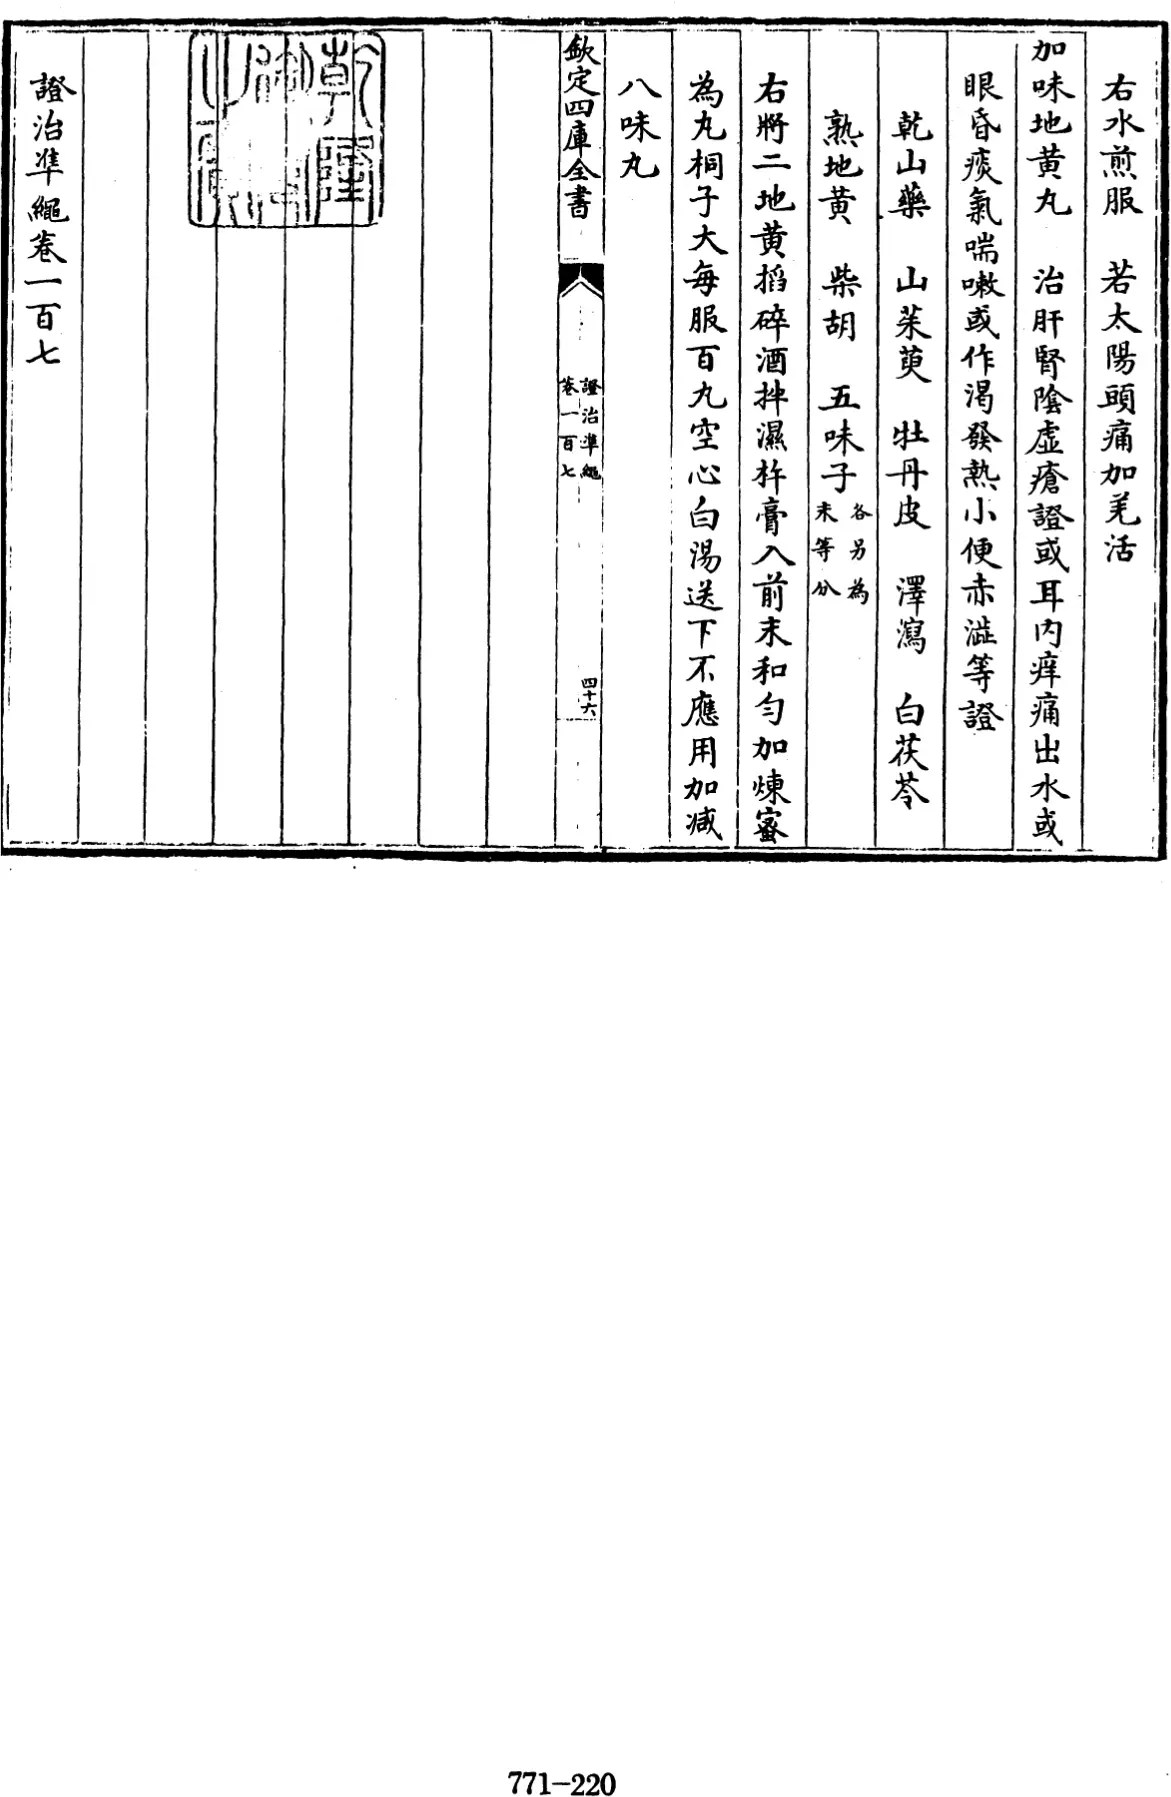 右水煎服　若太陽頭痛加羌活
加味地黄丸　治肝腎陰虛瘡證或耳内痒痛出水或
眼昏痰氣喘嗽或作渴發熱小便赤澁等證
乾山藥　山茱萸　牡丹皮　澤瀉　白茯苓
熟地黄　柴胡　五味子各另為末等分
右將二地黄搯碎酒拌濕杵膏入前末和勻加煉蜜
為丸桐子大每服百丸空心白湯送下不應用加减
八味丸
欽定四庫全書
證治準繩
卷一百七
四十六
乾隆
證治準繩卷一百七
771-220